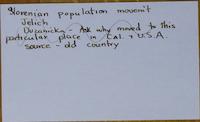 Slovenian population movem't
Jelich
Ducanicka - Ask why moved to this
particular place in Cal. & U.S.A.
source - old country